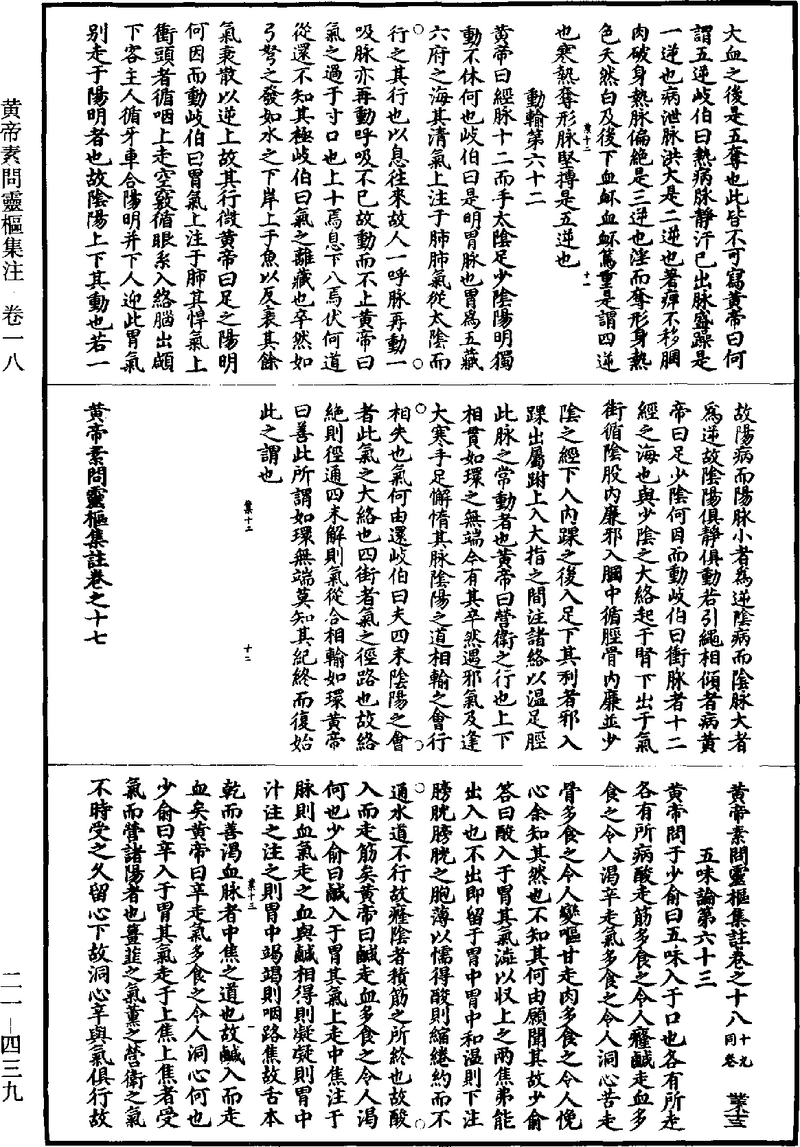 大血之後是五奪也此皆不可寫黃帝曰何
謂五逆歧伯曰熱病脉靜汗已出脉盛躁是
一逆也病泄脉洪大是二逆也著痺不移䐃
肉破身熱脉偏絕是三逆也淫而奪形身熱
色夭然白及後下血衃血衃篤重是謂四逆
也寒熱奪形脉堅搏是五逆也
動輸第六十二
黃帝曰經脉十二而手太陰足少陰陽明獨
動不休何也歧伯曰是明胃脉也胃為五藏
六府之海其清氣上注于肺肺氣從太陰而
行之其行也以息往來故人一呼脉再動一
吸脉亦再動呼吸不已故動而不止黃帝曰
氣之過于寸口也上十焉息下八焉伏何道
從還不知其極歧伯曰氣之離藏也卒然如
弓弩之發如水之下岸上于魚以反衰其餘
氣衰散以逆上故其行微黃帝曰足之陽明
何因而動歧伯曰胃氣上注于肺其悍氣上
衝頭者循咽上走空竅循眼系入絡腦出顑
下客主人循牙車合陽明并下人迎此胃氣
別走于陽明者也故陰陽上下其動也若一
故陽病而陽脉小者為逆陰病而陰脉大者
為逆故陰陽俱靜俱動若引繩相傾者病黃
帝曰足少陰何因而動歧伯曰衝脉者十二
經之海也與少陰之大絡起于腎下出于氣
街循陰股內廉邪入膕中循脛骨內廉並少
陰之經下入內踝之後入足下其別者邪入
踝出屬跗上入大指之間注諸絡以溫足脛
此脉之常動者也黃帝曰營衛之行也上下
相貫如環之無端今有其卒然遇邪氣及逢
大寒手足懈惰其脉陰陽之道相輸之會行
相失也氣何由還歧伯曰夫四末陰陽之會
者此氣之大絡也四街者氣之徑路也故絡
絕則徑通四末解則氣從合相輸如環黃帝
曰善此所謂如環無端莫知其紀終而復始
此之謂也
黃帝素問靈樞集註卷之十七
黃帝素問靈樞集註卷之十八 十九同卷 業十三
五味論第六十三
黃帝問于少俞曰五味入于口也各有所走
各有所病酸走筋多食之令人癃鹹走血多
食之令人渴辛走氣多食之令人洞心苦走
骨多食之令人變嘔甘走肉多食之令人悗
心余知其然也不知其何由願聞其故少俞
答曰酸入于胃其氣澁以收上之兩焦弗能
出入也不出即留于胃中胃中和溫則下注
膀胱膀胱之胞薄以懦得酸則縮綣約而不
通水道不行故癃陰者積筋之所終也故酸
入而走筋矣黃帝曰鹹走血多食之令人渴
何也少俞曰鹹入于胃其氣上走中焦注于
脉則血氣走之血與鹹相得則凝凝則胃中
汁注之注之則胃中竭竭則咽路焦故舌本
乾而善渴血脉者中焦之道也故鹹入而走
血矣黃帝曰辛走氣多食之令人洞心何也
少俞曰辛入于胃其氣走于上焦上焦者受
氣而營諸陽者也薑韭之氣薰之營衛之氣
不時受之久留心下故洞心辛與氣俱行故
黄帝素問靈樞集注 卷一八
二一—四三九